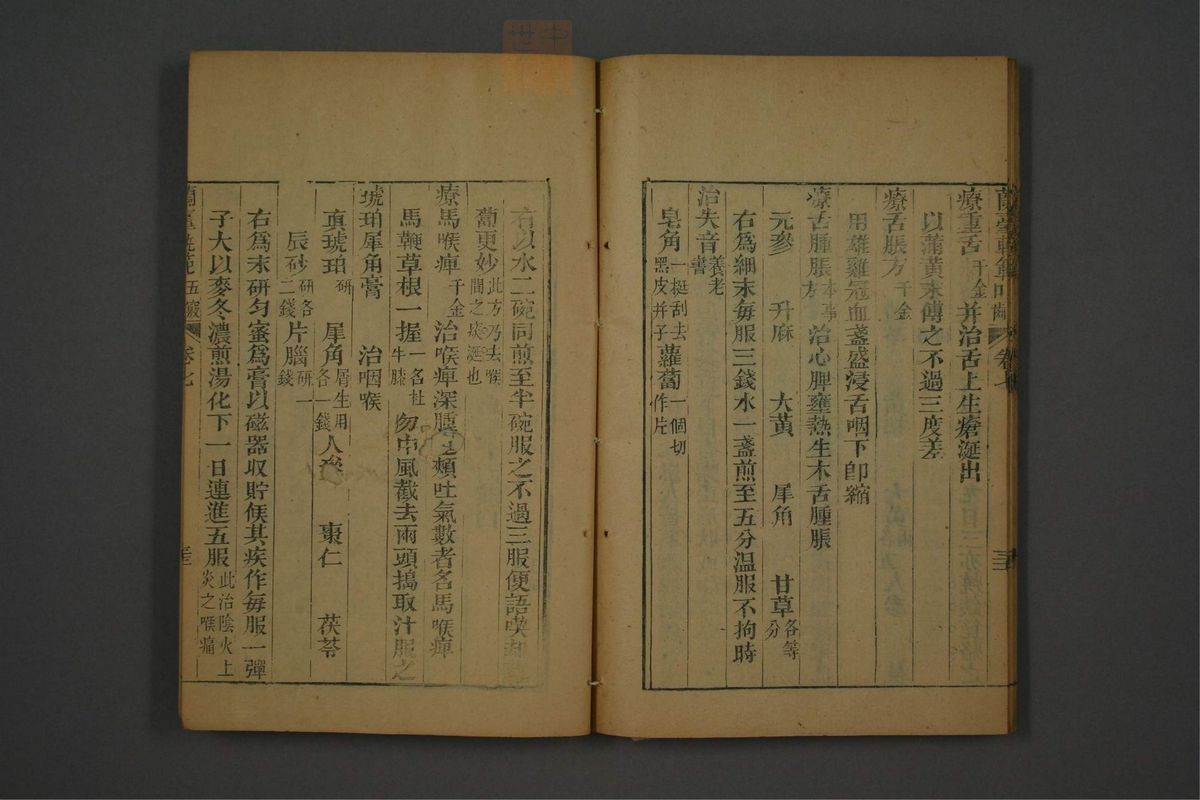 蘭臺軌範 卷七
療重舌千金并治舌上生瘡涎出
以蒲黃末傅之不過三度差
療舌脹方千金
用雄雞冠血盞盛浸舌咽下即縮
療舌腫脹方本事治心脾壅熱生木舌腫脹
元參 升麻 大黃 犀角 甘草各等分
右為細末每服三錢水一盞煎至五分溫服不拘時
治失音養老書
皂角一挺刮去黑皮并子蘿蔔一個切作片
右以水二碗同煎至半碗服之不過三服便語喫
蔔更妙此方乃去喉間之痰涎也
療馬喉痺千金治喉痺深腫連頰吐氣數者名馬喉痺
馬鞭草根一握一名牡牛膝勿中風截去兩頭搗取汁服之
琥珀犀角膏 治咽喉
真琥珀研 犀角屑生用各一錢人參 棗仁 茯苓
辰砂研各二錢片腦研一錢
右為末研勻蜜為膏以磁器收貯候其疾作每服一彈
子大以麥冬濃煎湯化下一日連進五服此治陰火上炎之喉痛
蘭臺軌範 卷七